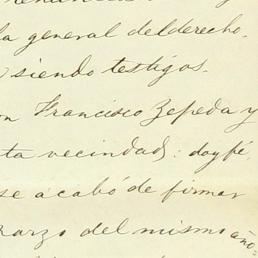 la general del derecho.
siendo testigos.
Francisco Zepeda y
ta vecindad: doy fé,
se acabó de firmar
marzo del mismo año.